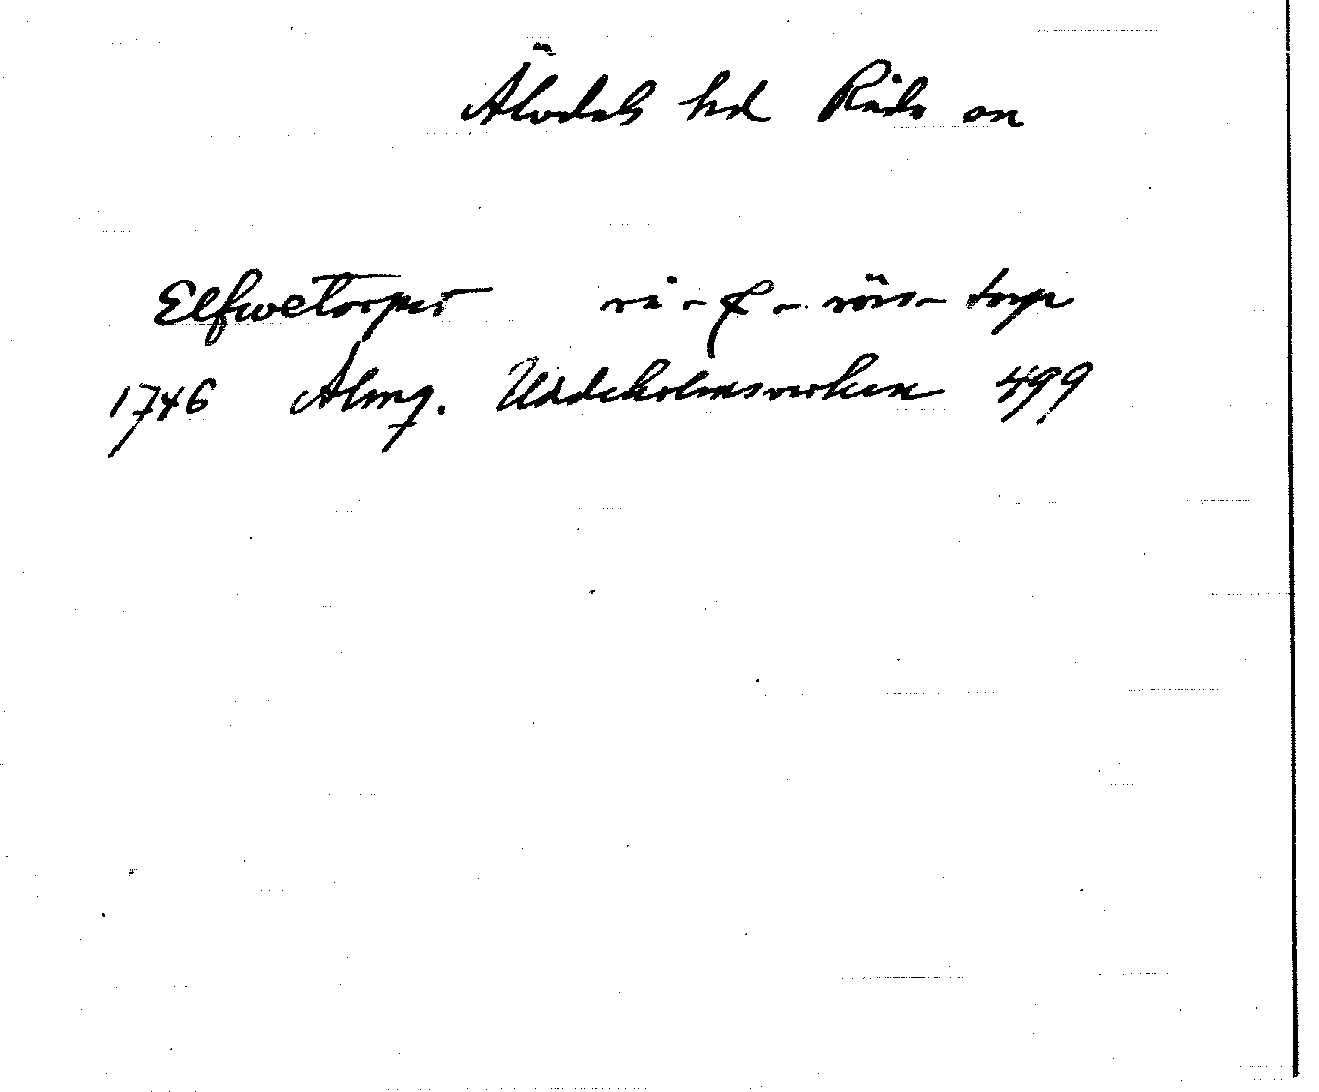 Älvdals hd Råda sn
Elfwetorpet rå - & - rörs- torp
1746 Älmg. Uddeholmsverken 499